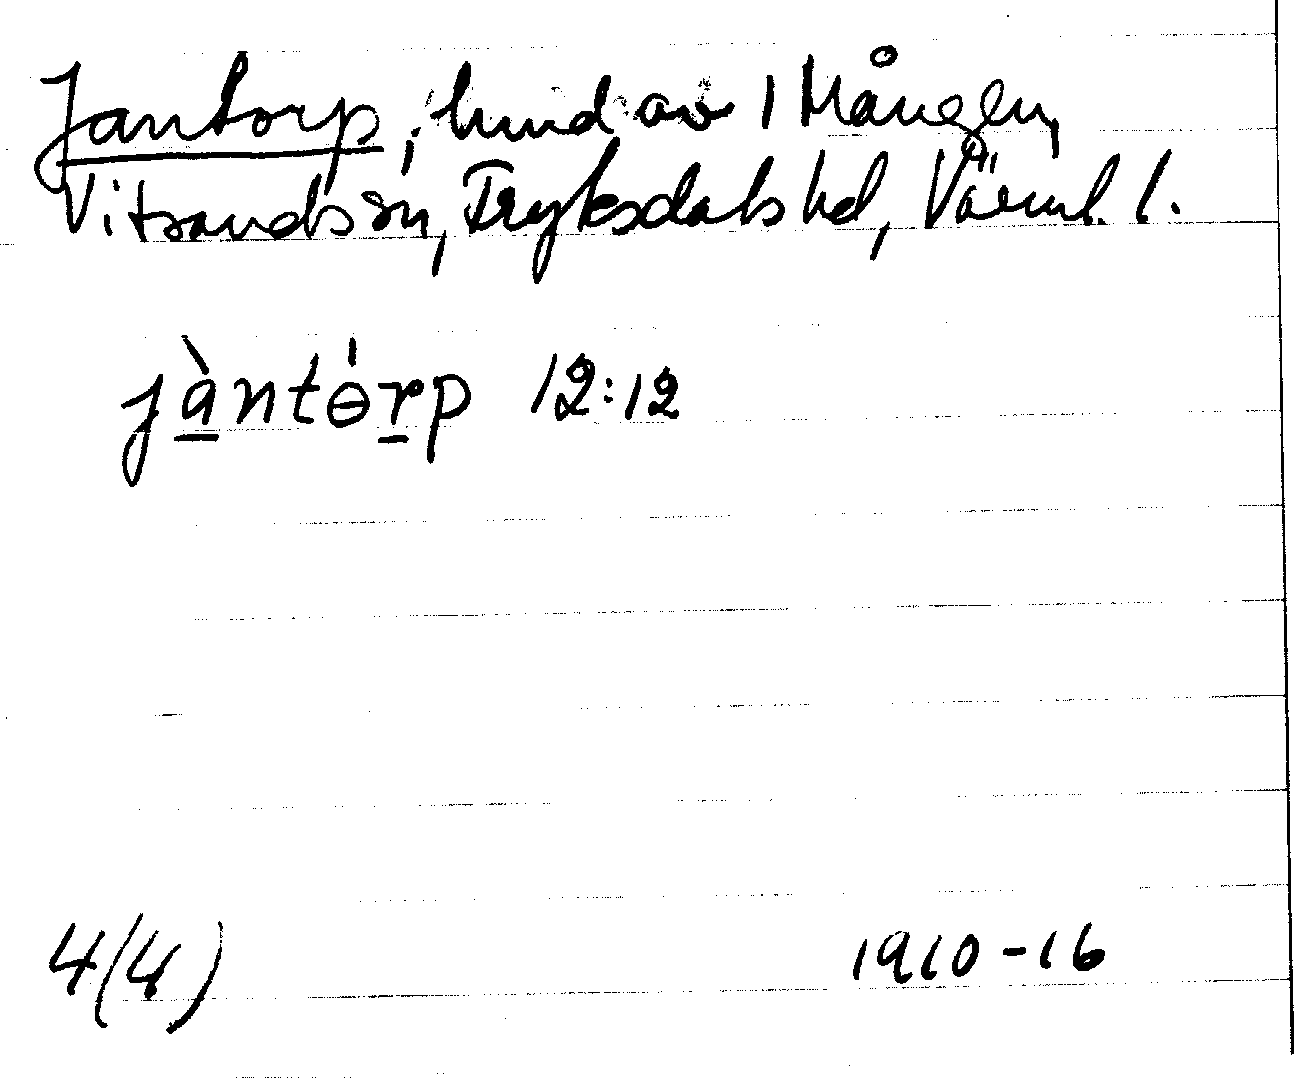 Jantorp, hmd av 1 Mången,
Vitsands sn, Fryksdals hd, Värml. l.
jàntɵ́rp 12:12
4(4)
1910-16